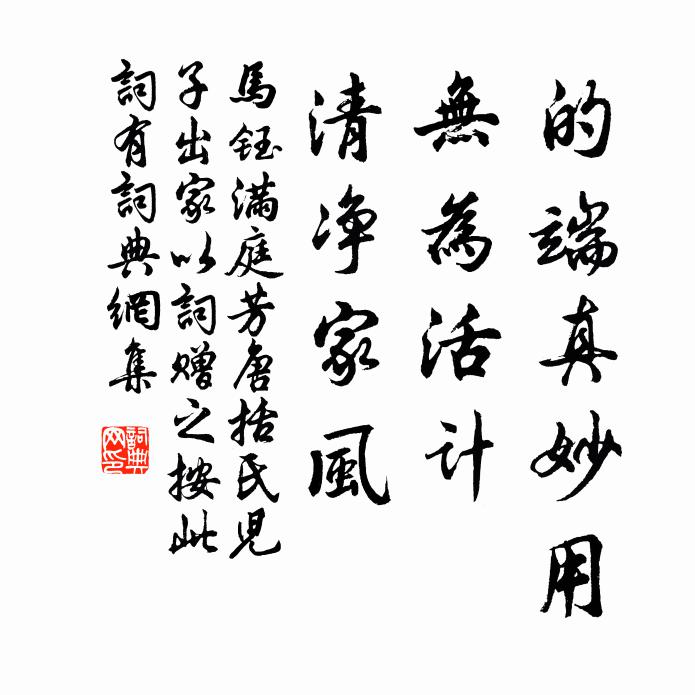 的端真妙用
無為活計
清净家風
馬鈺满庭芳唐括氏兒
子出家以詞赠之按此
詞有詞典網集
詞典
网印